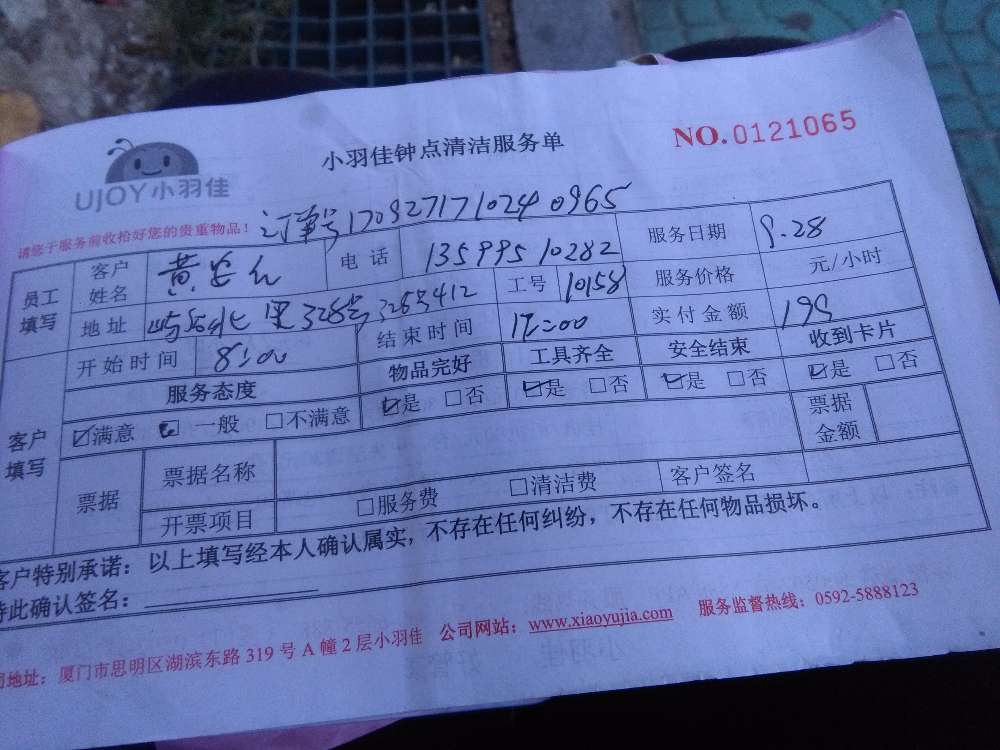 UJOY小羽佳
小羽佳钟点清洁服务单
NO.0121065
请您于服务前收拾好您的贵重物品！
订单号170927171024 0965
员工填写
客户姓名 黄
电话 13599510282
服务日期 9.28
地址 北里328号 326号412
工号 10158
服务价格 元/小时
开始时间 8:00
结束时间 12:00
实付金额
客户填写
服务态度 物品完好 工具齐全 安全结束 收到卡片
☑满意 ☑一般 □不满意 ☑是 □否 ☑是 □否 ☑是 □否 ☑是 □否
票据 票据名称 票据金额
开票项目 □服务费 □清洁费 客户签名
客户特别承诺：以上填写经本人确认属实，不存在任何纠纷，不存在任何物品损坏。
特此确认签名：
地址：厦门市思明区湖滨东路 319 号 A 幢 2 层小羽佳 公司网站：www.xiaoyujia.com 服务监督热线：0592-5888123